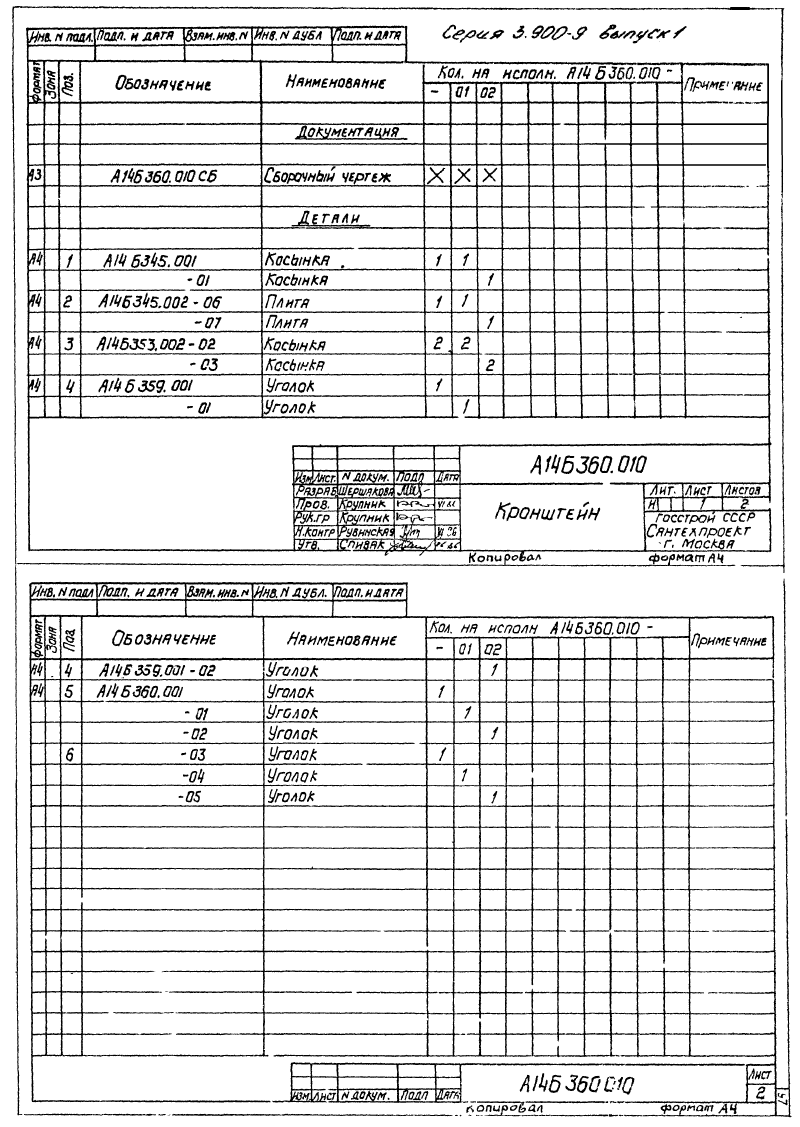 Серия 3.900-9 Выпуск 1
Инв. N подл. Подп. и дата Взам. инв. N Инв. N дубл Подп. и дата
Формат Зона Поз. Обозначение Наименование Кол. на исполн. А14Б360.010 - Примечание
- 01 02
Документация
А3 А14Б360.010 СБ Сборочный чертеж X X X
Детали
А4 1 А14Б345.001 Косынка 1 1
-01 Косынка 1
А4 2 А14Б345.002-06 Плита 1 1
-07 Плита 1
А4 3 А14Б353.002-02 Косынка 2 2
-03 Косынка 2
А4 4 А14Б359.001 Уголок 1
-01 Уголок 1
А14Б360.010
Изм Лист. N докум. Подп Дата
Разраб Шершакова
Пров. Крупник
Рук.гр Крупник
Н.контр Рувинская
Утв. Спивак
Кронштейн
Лит. Лист Листов
И 1 2
Госстрой СССР
Сантехпроект
г. Москва
Копировал формат А4
Инв. N подл Подп. и дата Взам. инв. N Инв. N дубл. Подп. и дата
Формат Зона Поз. Обозначение Наименование Кол. на исполн А14Б360.010 - Примечание
- 01 02
А4 4 А14Б359.001-02 Уголок 1
А4 5 А14Б360.001 Уголок 1
-01 Уголок 1
-02 Уголок 1
6 -03 Уголок 1
-04 Уголок 1
-05 Уголок 1
Изм Лист N докум. Подп Дата
А14Б360 010
Лист
2
Копировал формат А4